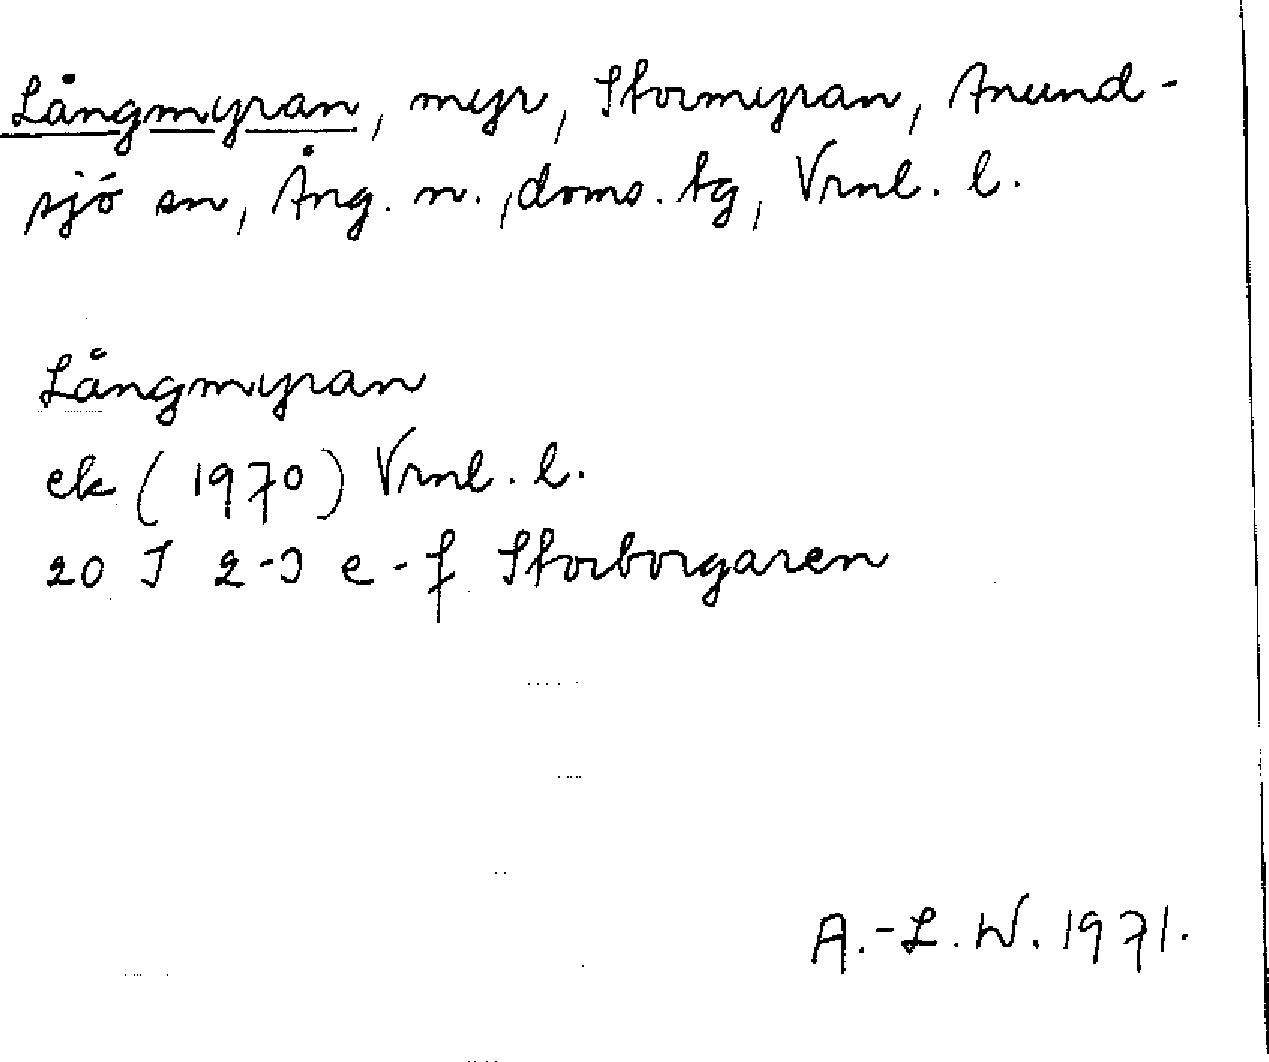 Långmyran, myr, Stormyran, Anund-
sjö sn, Ång. n., doms. tg, Vrml. l.
Långmyran
ek (1970) Vrml. l.
20 I 2-3 e-f Storborgaren
A.-L. W. 1971.